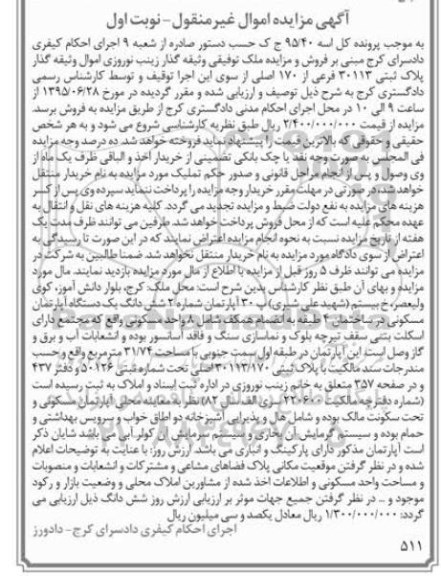 آگهی مزایده اموال غیرمنقول - نوبت اول
به موجب پرونده کل اسه ۹۵/۴۰ ج ک حسب دستور صادره از شعبه ۹ اجرای احکام کیفری
دادسرای کرج مبنی بر فروش و مزایده ملک توقیفی وثیقه گذار زینب نوروزی اموال وثیقه گذار
پلاک ثبتی ۳۰۱۱۳ فرعی از ۱۷۰ اصلی از سوی این اجرا توقیف و توسط کارشناس رسمی
دادگستری کرج به شرح ذیل توصیف و ارزیابی شده و مقرر گردیده در مورخ ۱۳۹۵/۰۶/۲۸ از
ساعت ۹ الی ۱۰ در محل اجرای احکام مدنی دادگستری کرج از طریق مزایده به فروش برسد.
مزایده از قیمت ۲/۴۰۰/۰۰۰/۰۰۰ ریال طبق نظریه کارشناسی شروع می شود و به هر شخص
حقیقی و حقوقی که بالاترین قیمت را پیشنهاد نماید فروخته خواهد شد. ده درصد وجه مزایده
فی المجلس به صورت وجه نقد یا چک بانکی تضمینی از خریدار اخذ و الباقی ظرف یک ماه از
وی وصول و پس از انجام مراحل قانونی و صدور حکم تملیک مورد مزایده به نام خریدار منتقل
خواهد شد، در صورتی در مهلت مقرر خریدار وجه مزایده را پرداخت ننماید سپرده وی پس از کسر
هزینه های مزایده به نفع دولت ضبط و مزایده تجدید می گردد. کلیه هزینه های نقل و انتقال به
عهده محکم علیه است که از محل فروش پرداخت خواهد شد. طرفین می توانند ظرف مدت یک
هفته از تاریخ مزایده نسبت به نحوه انجام مزایده اعتراض نمایند که در این صورت تا رسیدگی به
اعتراض از سوی دادگاه مورد مزایده به نام خریدار منتقل نخواهد شد. ضمنا طالبین به شرکت در
مزایده می توانند ظرف ۵ روز قبل از مزایده با اطلاع از مال مورد مزایده بازدید نمایند. مال مورد
مزایده و بهای آن طبق نظر کارشناس بدین شرح است: محل ملک: کرج، بلوار دانش آموز، کوی
ولیعصر، خ بیستم (شهید علی شیری) پ ۳۰ آپارتمان شماره ۲ شش دانگ یک دستگاه آپارتمان
مسکونی در ساختمان ۴ طبقه به انضمام همکف شامل ۸ واحد مسکونی واقع که مجتمع دارای
اسکلت بتنی سقف تیرچه بلوک و نماسازی سنگ و فاقد آسانسور بوده و انشعابات آب و برق و
گاز وصل است این آپارتمان در طبقه اول سمت جنوبی با مساحت ۳۱/۷۴ مترمربع واقع وحسب
مندرجات سند مالکیت با پلاک ثبتی ۳۰۱۱۳/۱۷۰ اصلی تحت شماره ثبتی ۵۰۱۲۶ و دفتر ۴۳۷
و در صفحه ۳۵۷ متعلق به خانم زینب نوروزی در اداره ثبت اسناد و املاک به ثبت رسیده است
(شماره دفترچه مالکیت ۲۲۰۶۰۰ سری الف اس ۸۲) نظر به معاینه محلی آپارتمان مسکونی و
تحت سکونت مالک بوده و شامل هال و پذیرایی آشپزخانه دو اطاق خواب و سرویس بهداشتی و
حمام بوده و سیستم گرمایش آن بخاری و سیستم سرمایش آن کولر آبی می باشد شایان ذکر
است آپارتمان مذکور دارای پارکینگ و انباری می باشد. ارزش روز: با عنایت به توضیحات اعلام
شده و در نظر گرفتن موقعیت مکانی پلاک فضاهای مشاعی و مشترکات و انشعابات و منصوبات
و مساحت واحد مسکونی و اطلاعات اخذ شده از مشاورین املاک محلی و وضعیت بازار و رکود
موجود و ... در نظر گرفتن جمیع جهات موثر بر ارزیابی ارزش روز شش دانگ ذیل ارزیابی می
گردد: ۱/۳۰۰/۰۰۰/۰۰۰ ریال معادل یکصد و سی میلیون ریال
اجرای احکام کیفری دادسرای کرج- دادورز
۵۱۱